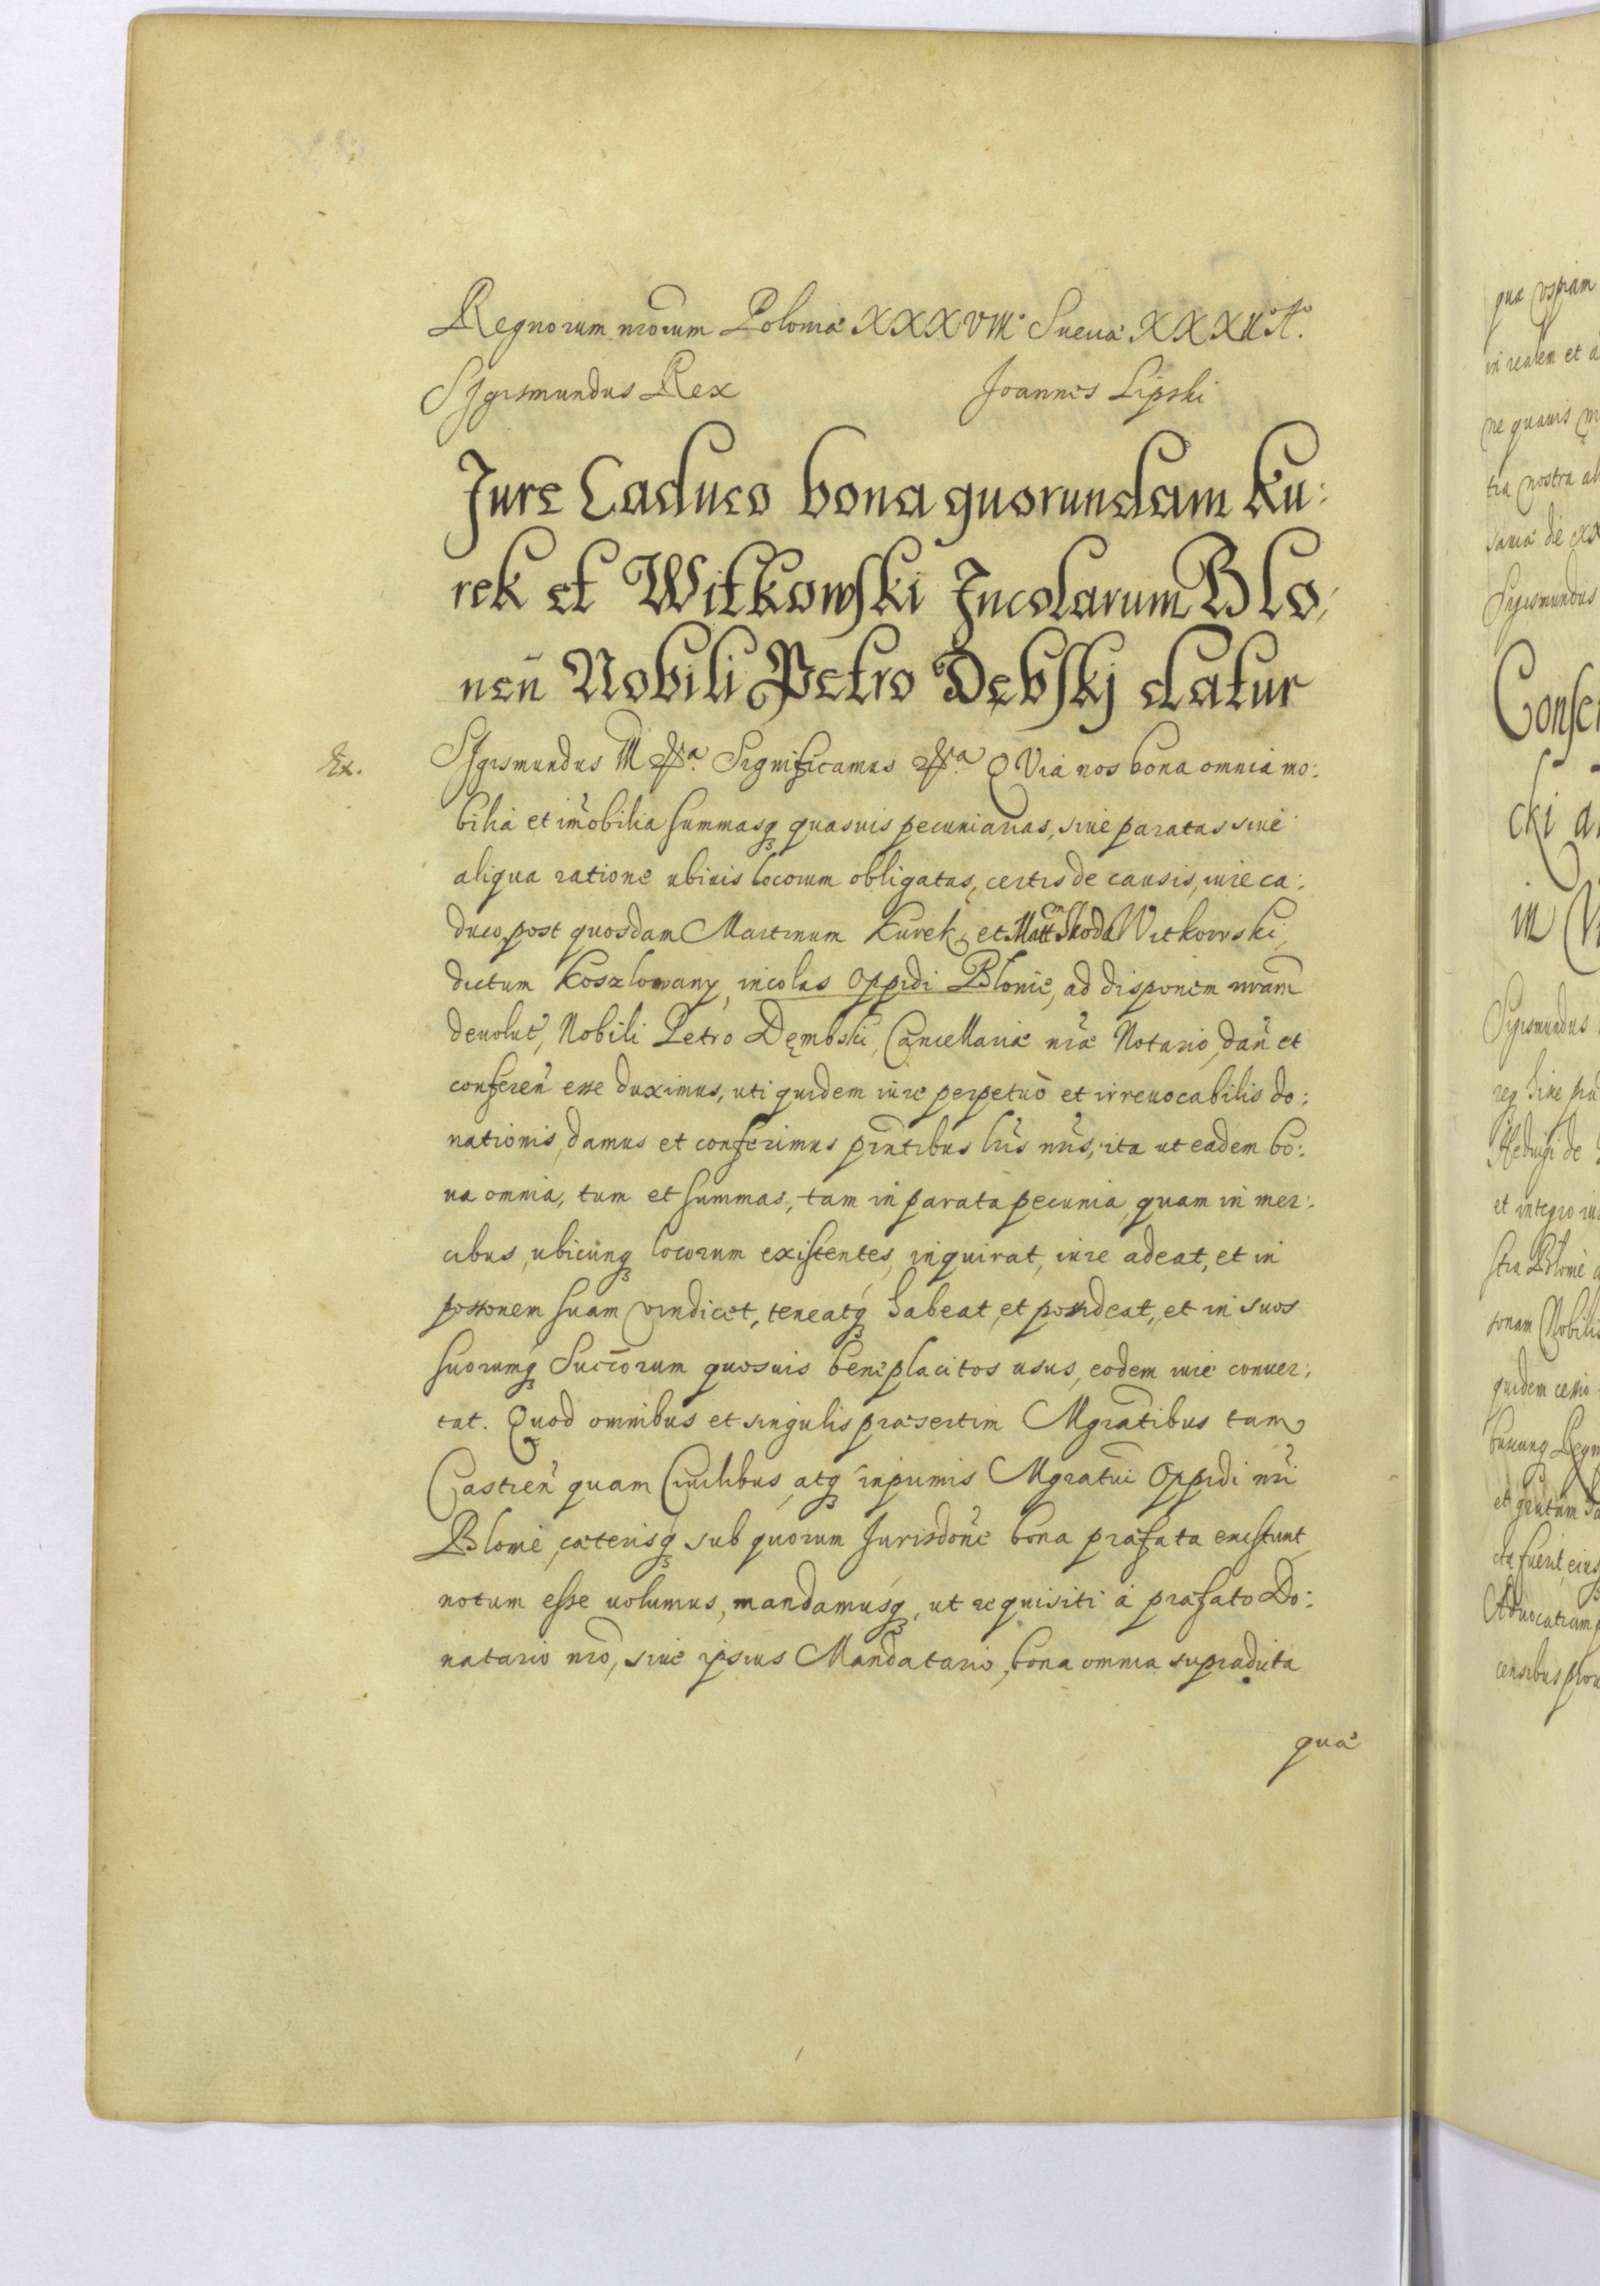 Regnorum nrorum Poloniæ XXXVIIIº Sueciæ XXXII Aº.
Sigismundus Rex Joannes Lipski
Jure Caduco bona quorundam Ku:
rek et Witkowski Incolarum Blo:
nen̄ Nobili Petro Dębskj datur
Ex.
Sigismundus III Significamus QVia nos bona omnia mo:
bilia et im̃obilia summasq quasuis pecuniarias, siue paratas siue
aliqua ratione ubiuis locorum obligatas, certis de causis, iure ca:
duco, post quosdam Martinum Kurek, et Matt Skoda Witkowski,
dictum Koszlowany, incolas Oppidi Blonie, ad disponem nram
deuolut, Nobili Petro Dęmbski, Cancellariæ nræ Notario, dan̄ et
conferen̄ esse duximus, uti quidem iure perpetuò et irreuocabilis do:
nationis, damus et conferimus pn̄tibus lris nris, ita ut eadem bo:
na omnia, tum et summas, tam in parata pecunia, quam in mer:
cibus, ubicunq locorum existentes, inquirat, iure adeat, et in
possonem suam vindicet, teneatq habeat, et possideat, et in suos
suorumq Succorum quosuis beneplacitos usus, eodem iure conuer:
tat. Quod omnibus et singulis præsertim Mgratibus tam
Castren̄ quam Ciuilibus, atq inprimis Mgratui Oppidi nri
Blonie, cæterisq sub quorum Jurisdone bona præfata existunt
notum esse uolumus, mandamusq, ut requisiti à præfato Do:
natario nro, siue ipsius Mandatario, bona omnia supradicta
quæ
quæ vspiam
in realem et a
ne quauis
tia nostra
Sigismundus
Conse
cki
in
Sigismundus
Heduigi de
et integro
Blonie
sonam Nobilis
quidem
fuerit, eius
censibus